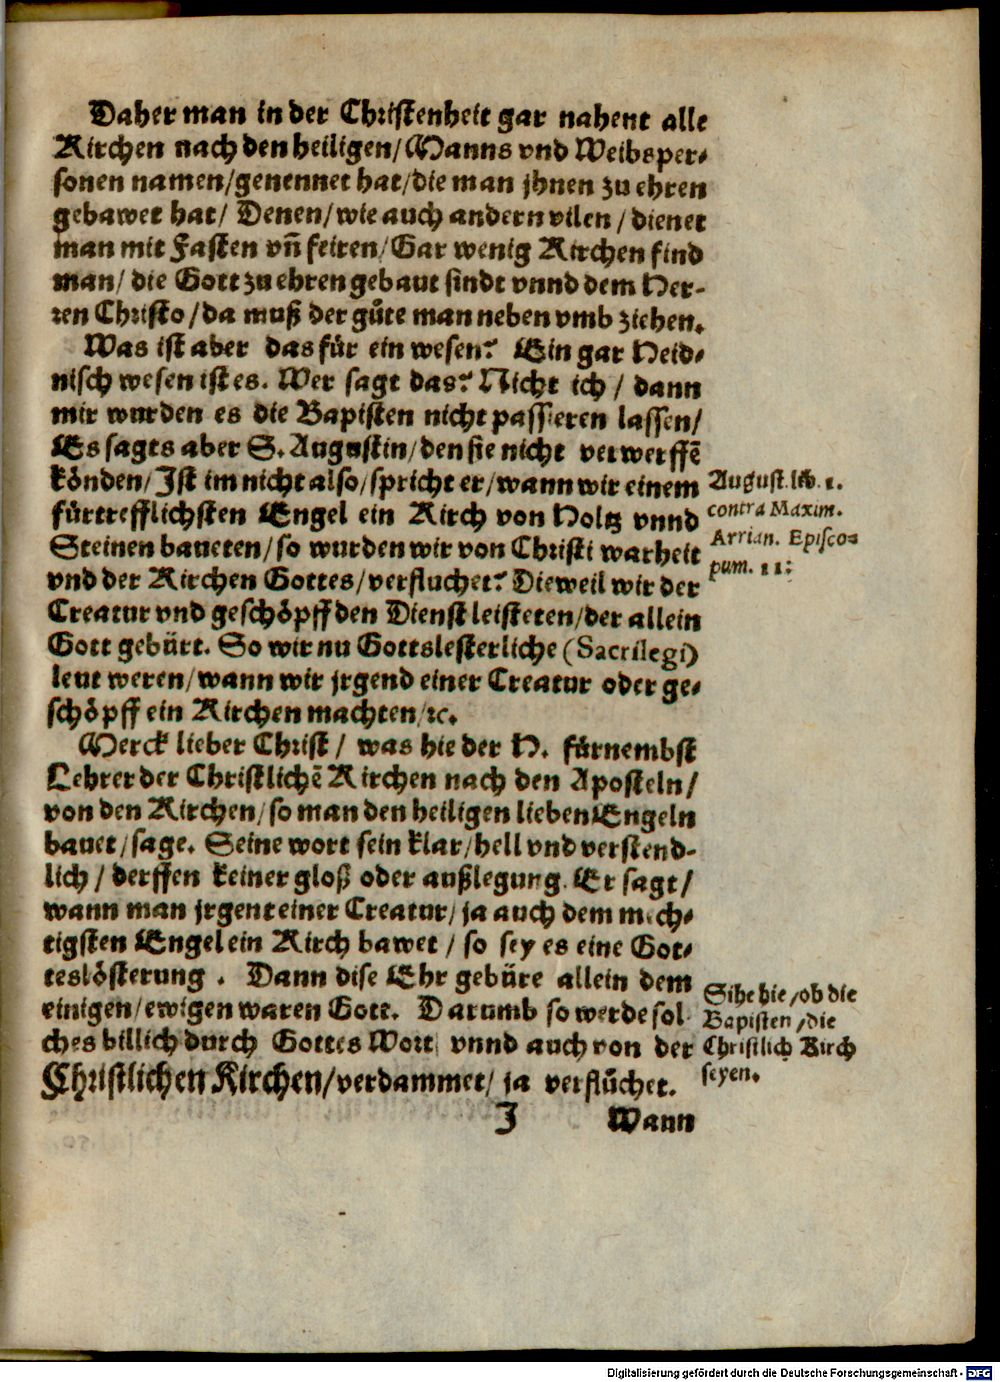 Daher man in der Christenheit gar nahent alle
Kirchen nach den heiligen/Manns vnd Weibsper-
sonen namen/genennet hat/die man jhnen zu ehren
gebawet hat/ Denen/wie auch andern vilen/dienet
man mit Fasten vn̄ feiren/Gar wenig Kirchen find
man/die Gott zu ehren gebaut sindt vnnd dem Her-
ren Christo/da muß der gůte man neben vmb ziehen.
Was ist aber das für ein wesen? Ein gar Heid-
nisch wesen ist es. Wer sagt das? Nicht ich/ dann
mir wurden es die Bapisten nicht passieren lassen/
Es sagts aber S. Augustin/den sie nicht verwerffē
könden/Ist im nicht also/spricht er/wann wir einem
fürtrefflichsten Engel ein Kirch von Holtz vnnd
Steinen baueten/so wurden wir von Christi warheit
vnd der Kirchen Gottes/verfluchet? Dieweil wir der
Creatur vnd geschöpff den Dienst leisteten/der allein
Gott gebürt. So wir nu Gottslesterliche (Sacrilegi)
leut weren/wann wir jrgend einer Creatur oder ge-
schöpff ein Kirchen machten/ꝛc.
August. lib. 1.
contra Maxim.
Arrian. Episco-
pum. 11:
Merck lieber Christ/ was hie der H. fürnembst
Lehrer der Christlichē Kirchen nach den Aposteln/
von den Kirchen/so man den heiligen lieben Engeln
bauet/sage. Seine wort sein klar/hell vnd verstend-
lich/derffen keiner gloß oder außlegung. Er sagt/
wann man jrgent einer Creatur/ja auch dem mech-
tigsten Engel ein Kirch bawet/ so sey es eine Got-
teslösterung. Dann dise Ehr gebüre allein dem
einigen/ewigen waren Gott. Darumb so werde sol
ches billich durch Gottes Wort vnnd auch von der
Christlichen Kirchen/verdammet/ ja verflůchet.
Sihe hie/ob die
Bapisten/die
Christlich Kirch
seyen.
J Wann
Digitalisierung gefördert durch die Deutsche Forschungsgemeinschaft - DFG